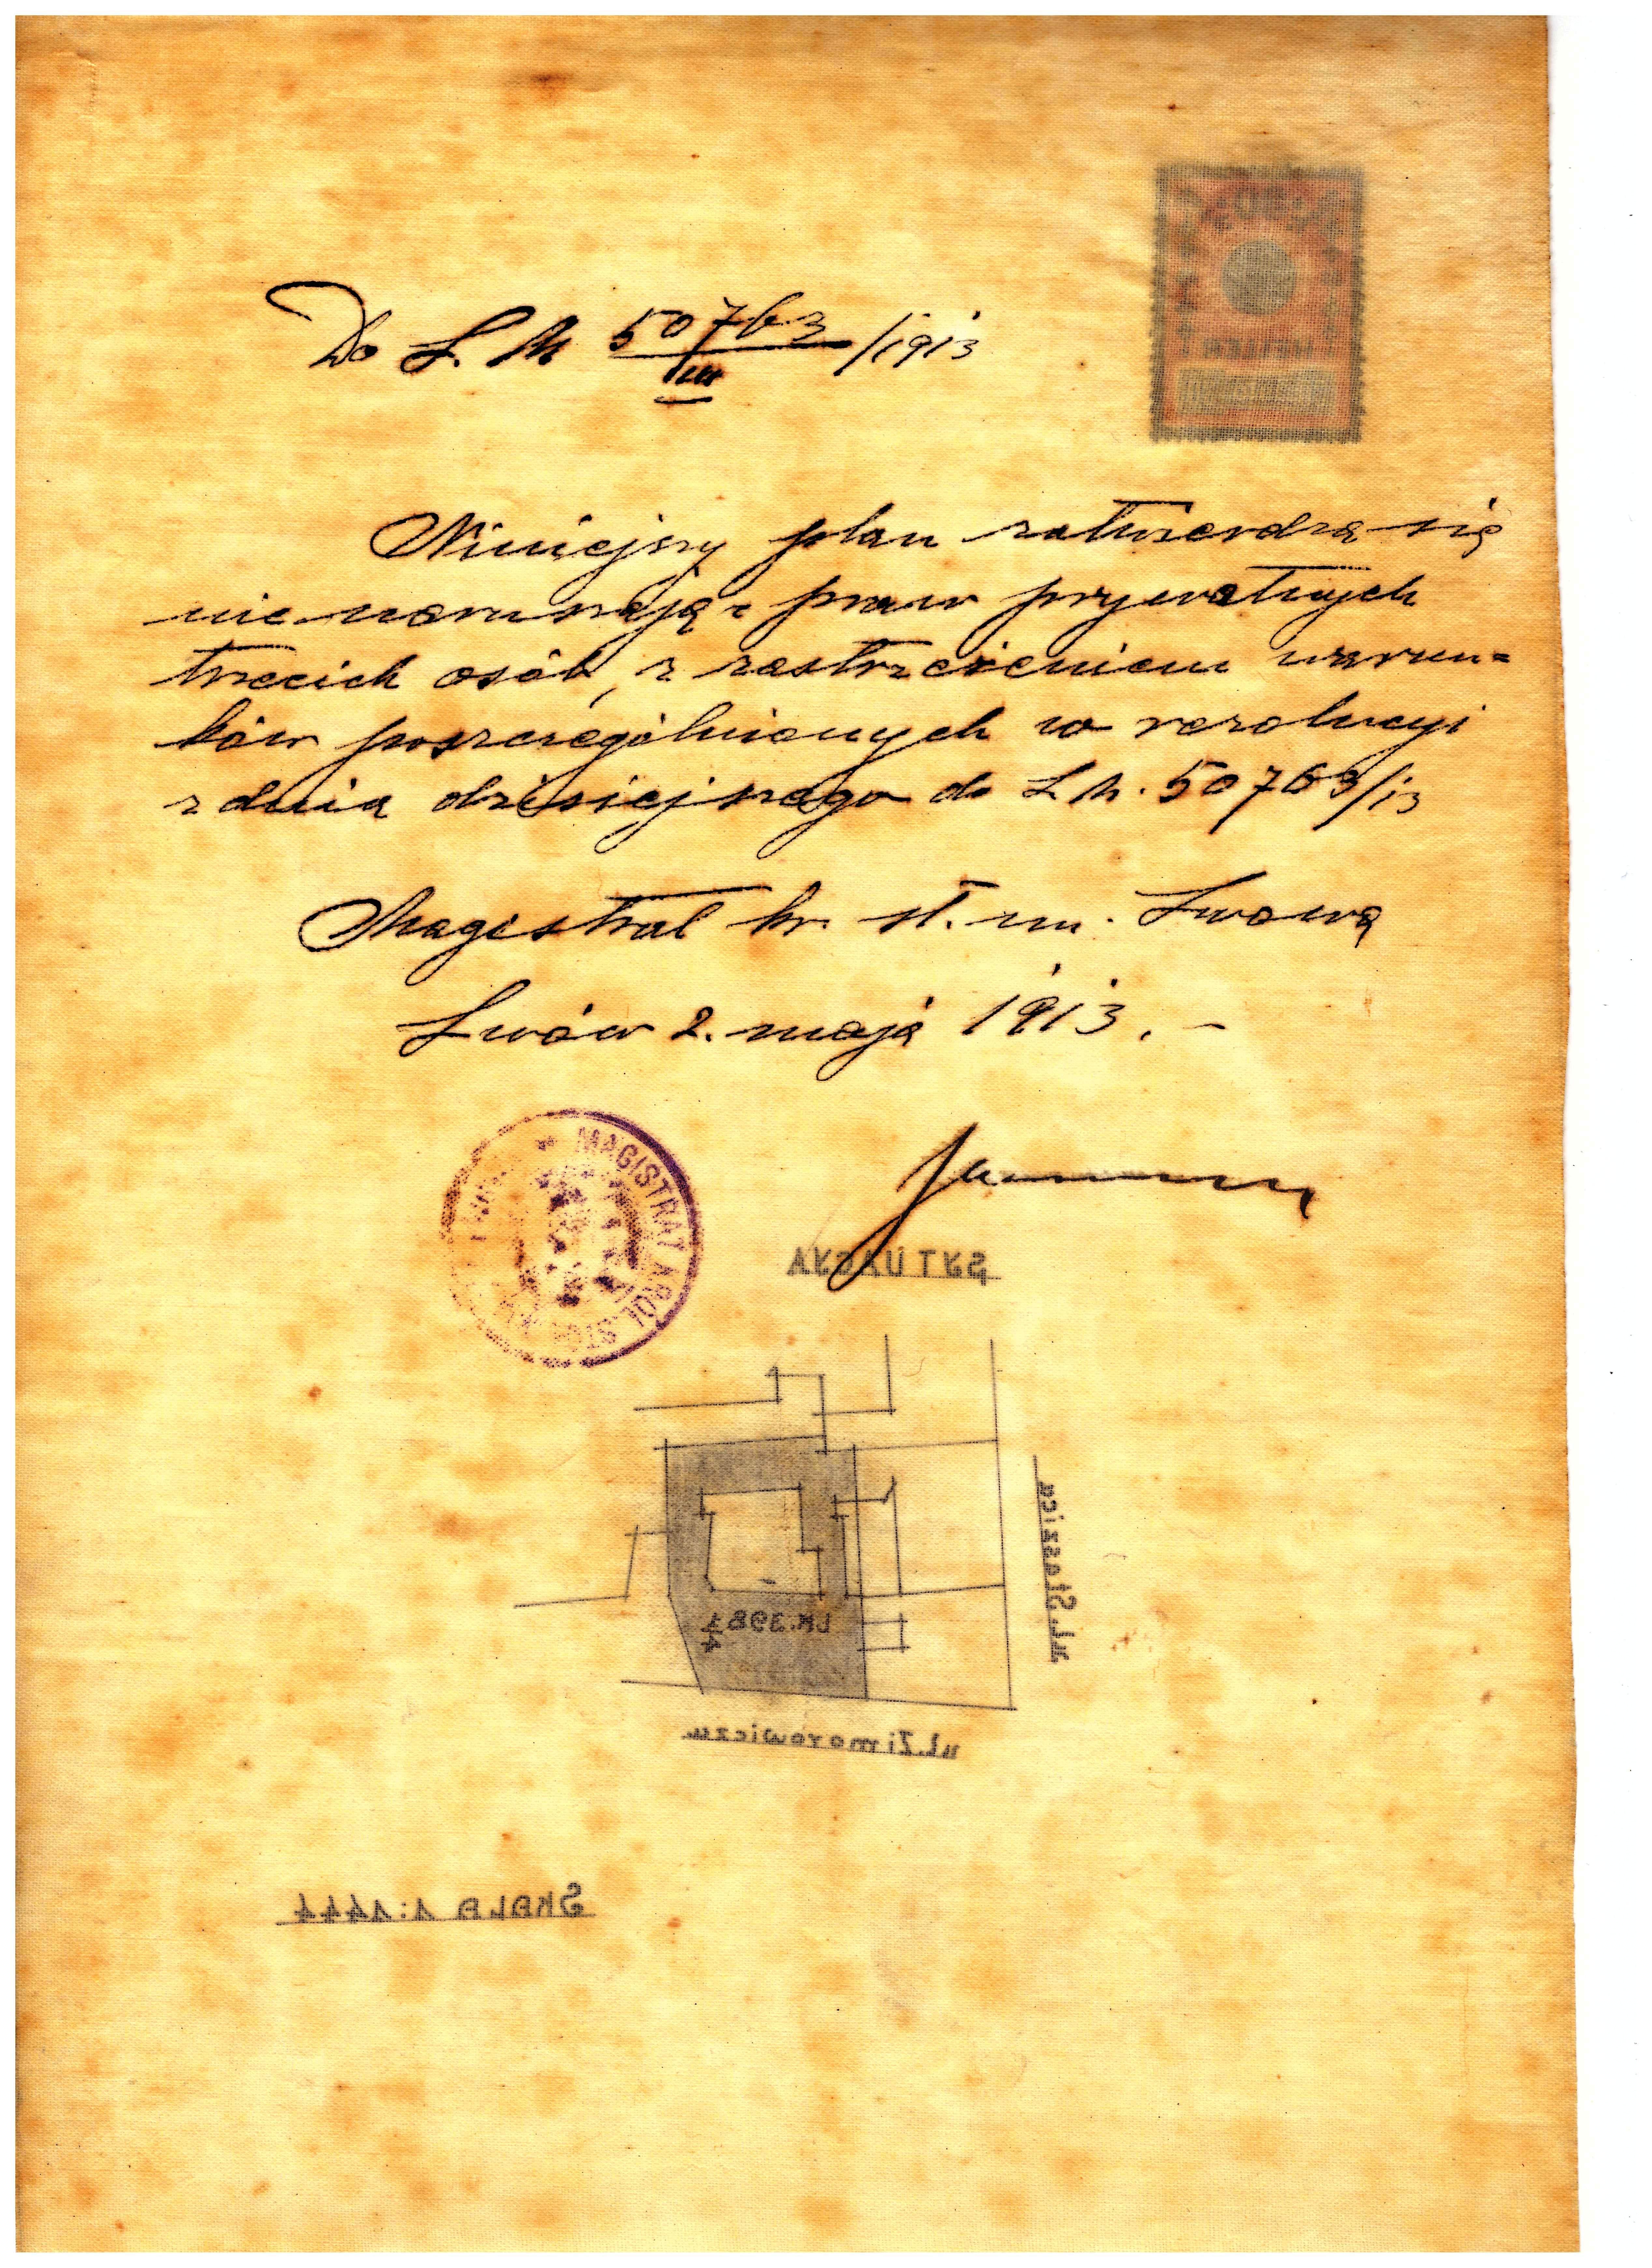 Do L. M. 50763/III /1913
Niniejszy plan zatwierdza się
nie naruszając praw prywatnych
trzecich osób, z zastrzeżeniem warun=
ków poszczególnionych w rezolucyi
z dnia dzisiejszego do L. M. 50763/13
Magistrat kr. st. m. Lwowa
Lwów 2. maja 1913. –
MAGISTRAT KRÓL. STOŁ.
SYTUACYA
ul. Staszica
LK. 398 7/4
ul. Zimorowicza
SKALA 1:1444